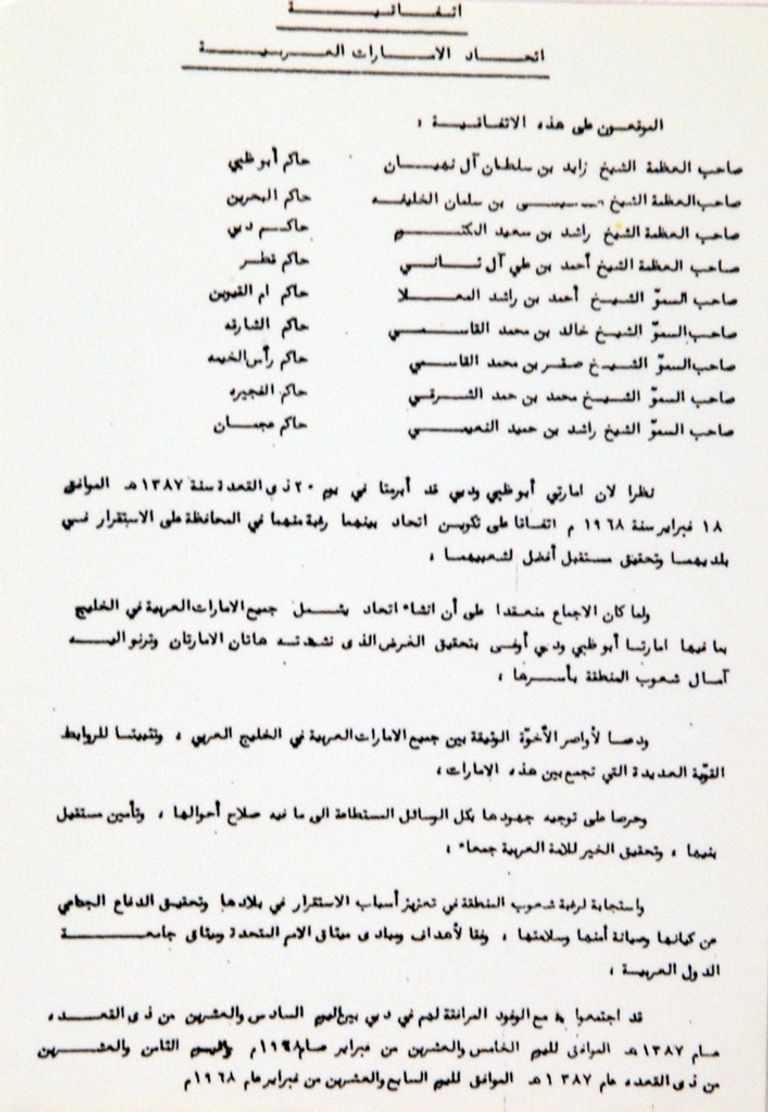 اتفاقية
اتحاد الامارات العربية
الموقعون على هذه الاتفاقية :
صاحب العظمة الشيخ زايد بن سلطان آل نهيان حاكم أبو ظبي
صاحب العظمة الشيخ عيسى بن سلمان الخليفه حاكم البحرين
صاحب العظمة الشيخ راشد بن سعيد المكتوم حاكم دبي
صاحب العظمة الشيخ أحمد بن علي آل ثاني حاكم قطر
صاحب السموّ الشيخ أحمد بن راشد المعلا حاكم ام القيوين
صاحب السموّ الشيخ خالد بن محمد القاسمي حاكم الشارقه
صاحب السموّ الشيخ صقر بن محمد القاسمي حاكم رأس الخيمه
صاحب السموّ الشيخ محمد بن حمد الشرقي حاكم الفجيره
صاحب السموّ الشيخ راشد بن حميد النعيمي حاكم عجمان
نظرا لان امارتي أبو ظبي ودبي قد أبرمتا في يوم ٢٠ ذى القعدة سنة ١٣٨٧ هـ الموافق
١٨ فبراير سنة ١٩٦٨ م اتفاقا على تكوين اتحاد بينهما رغبة منهما في المحافظة على الاستقرار في
بلديهما وتحقيق مستقبل أفضل لشعبيهما ،
ولما كان الاجماع منعقدا على أن انشاء اتحاد يشمل جميع الامارات العربية في الخليج
بما فيها امارتا أبو ظبي ودبي أوفى بتحقيق الغرض الذى نشدته هاتان الامارتان وترنو اليه
آمال شعوب المنطقة بأسرها ،
ودعما لأواصر الأخوّة الوثيقة بين جميع الامارات العربية في الخليج العربي ، وتثبيتا للروابط
القوّية العديدة التي تجمع بين هذه الامارات،
وحرصا على توجيه جهودها بكل الوسائل المستطاعة الى ما فيه صلاح أحوالها ، وتأمين مستقبل
بنيها ، وتحقيق الخير للامة العربية جمعاء ،
واستجابة لرغبة شعوب المنطقة في تعزيز أسباب الاستقرار في بلادها وتحقيق الدفاع الجماعي
عن كيانها وصيانة أمنها وسلامتها ، وفقا لأهداف ومبادى ميثاق الامم المتحدة وميثاق جامعة
الدول العربية ،
قد اجتمعوا مع الوفود المرافقة لهم في دبي بين اليوم السادس والعشرين من ذى القعده
عام ١٣٨٧ هـ الموافق لليوم الخامس والعشرين من فبراير عام ١٩٦٨م واليوم الثامن والعشرين
من ذى القعده عام ١٣٨٧ هـ الموافق لليوم السابع والعشرين من فبراير عام ١٩٦٨م